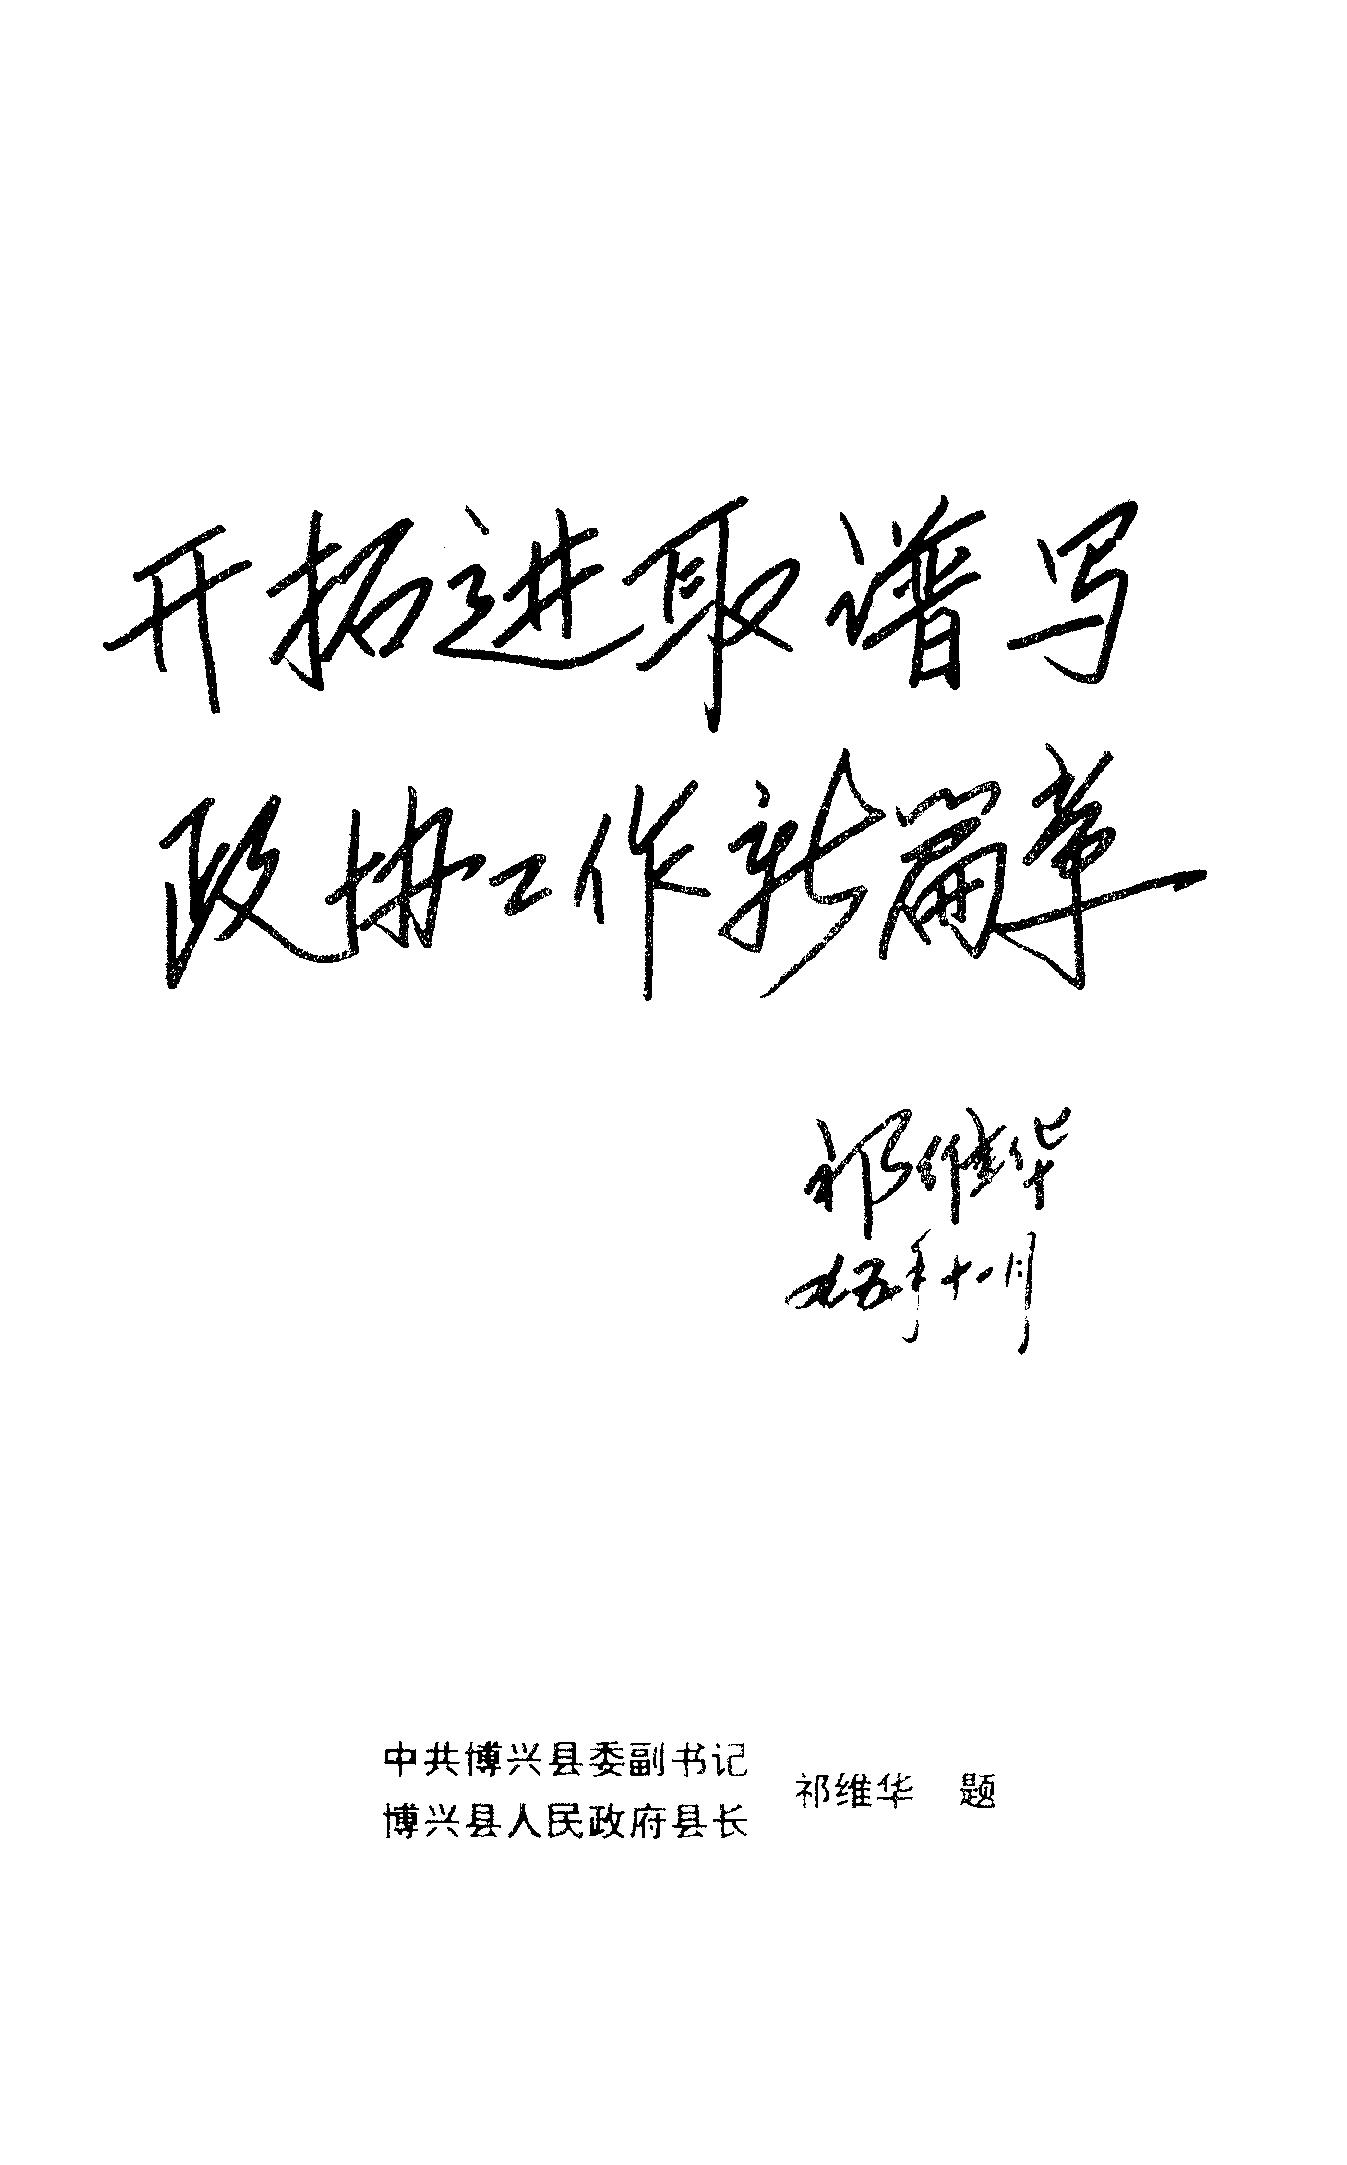 开拓进取谱写
政协工作新篇章
祁维华
九五年十一月
中共博兴县委副书记
博兴县人民政府县长
祁维华 题